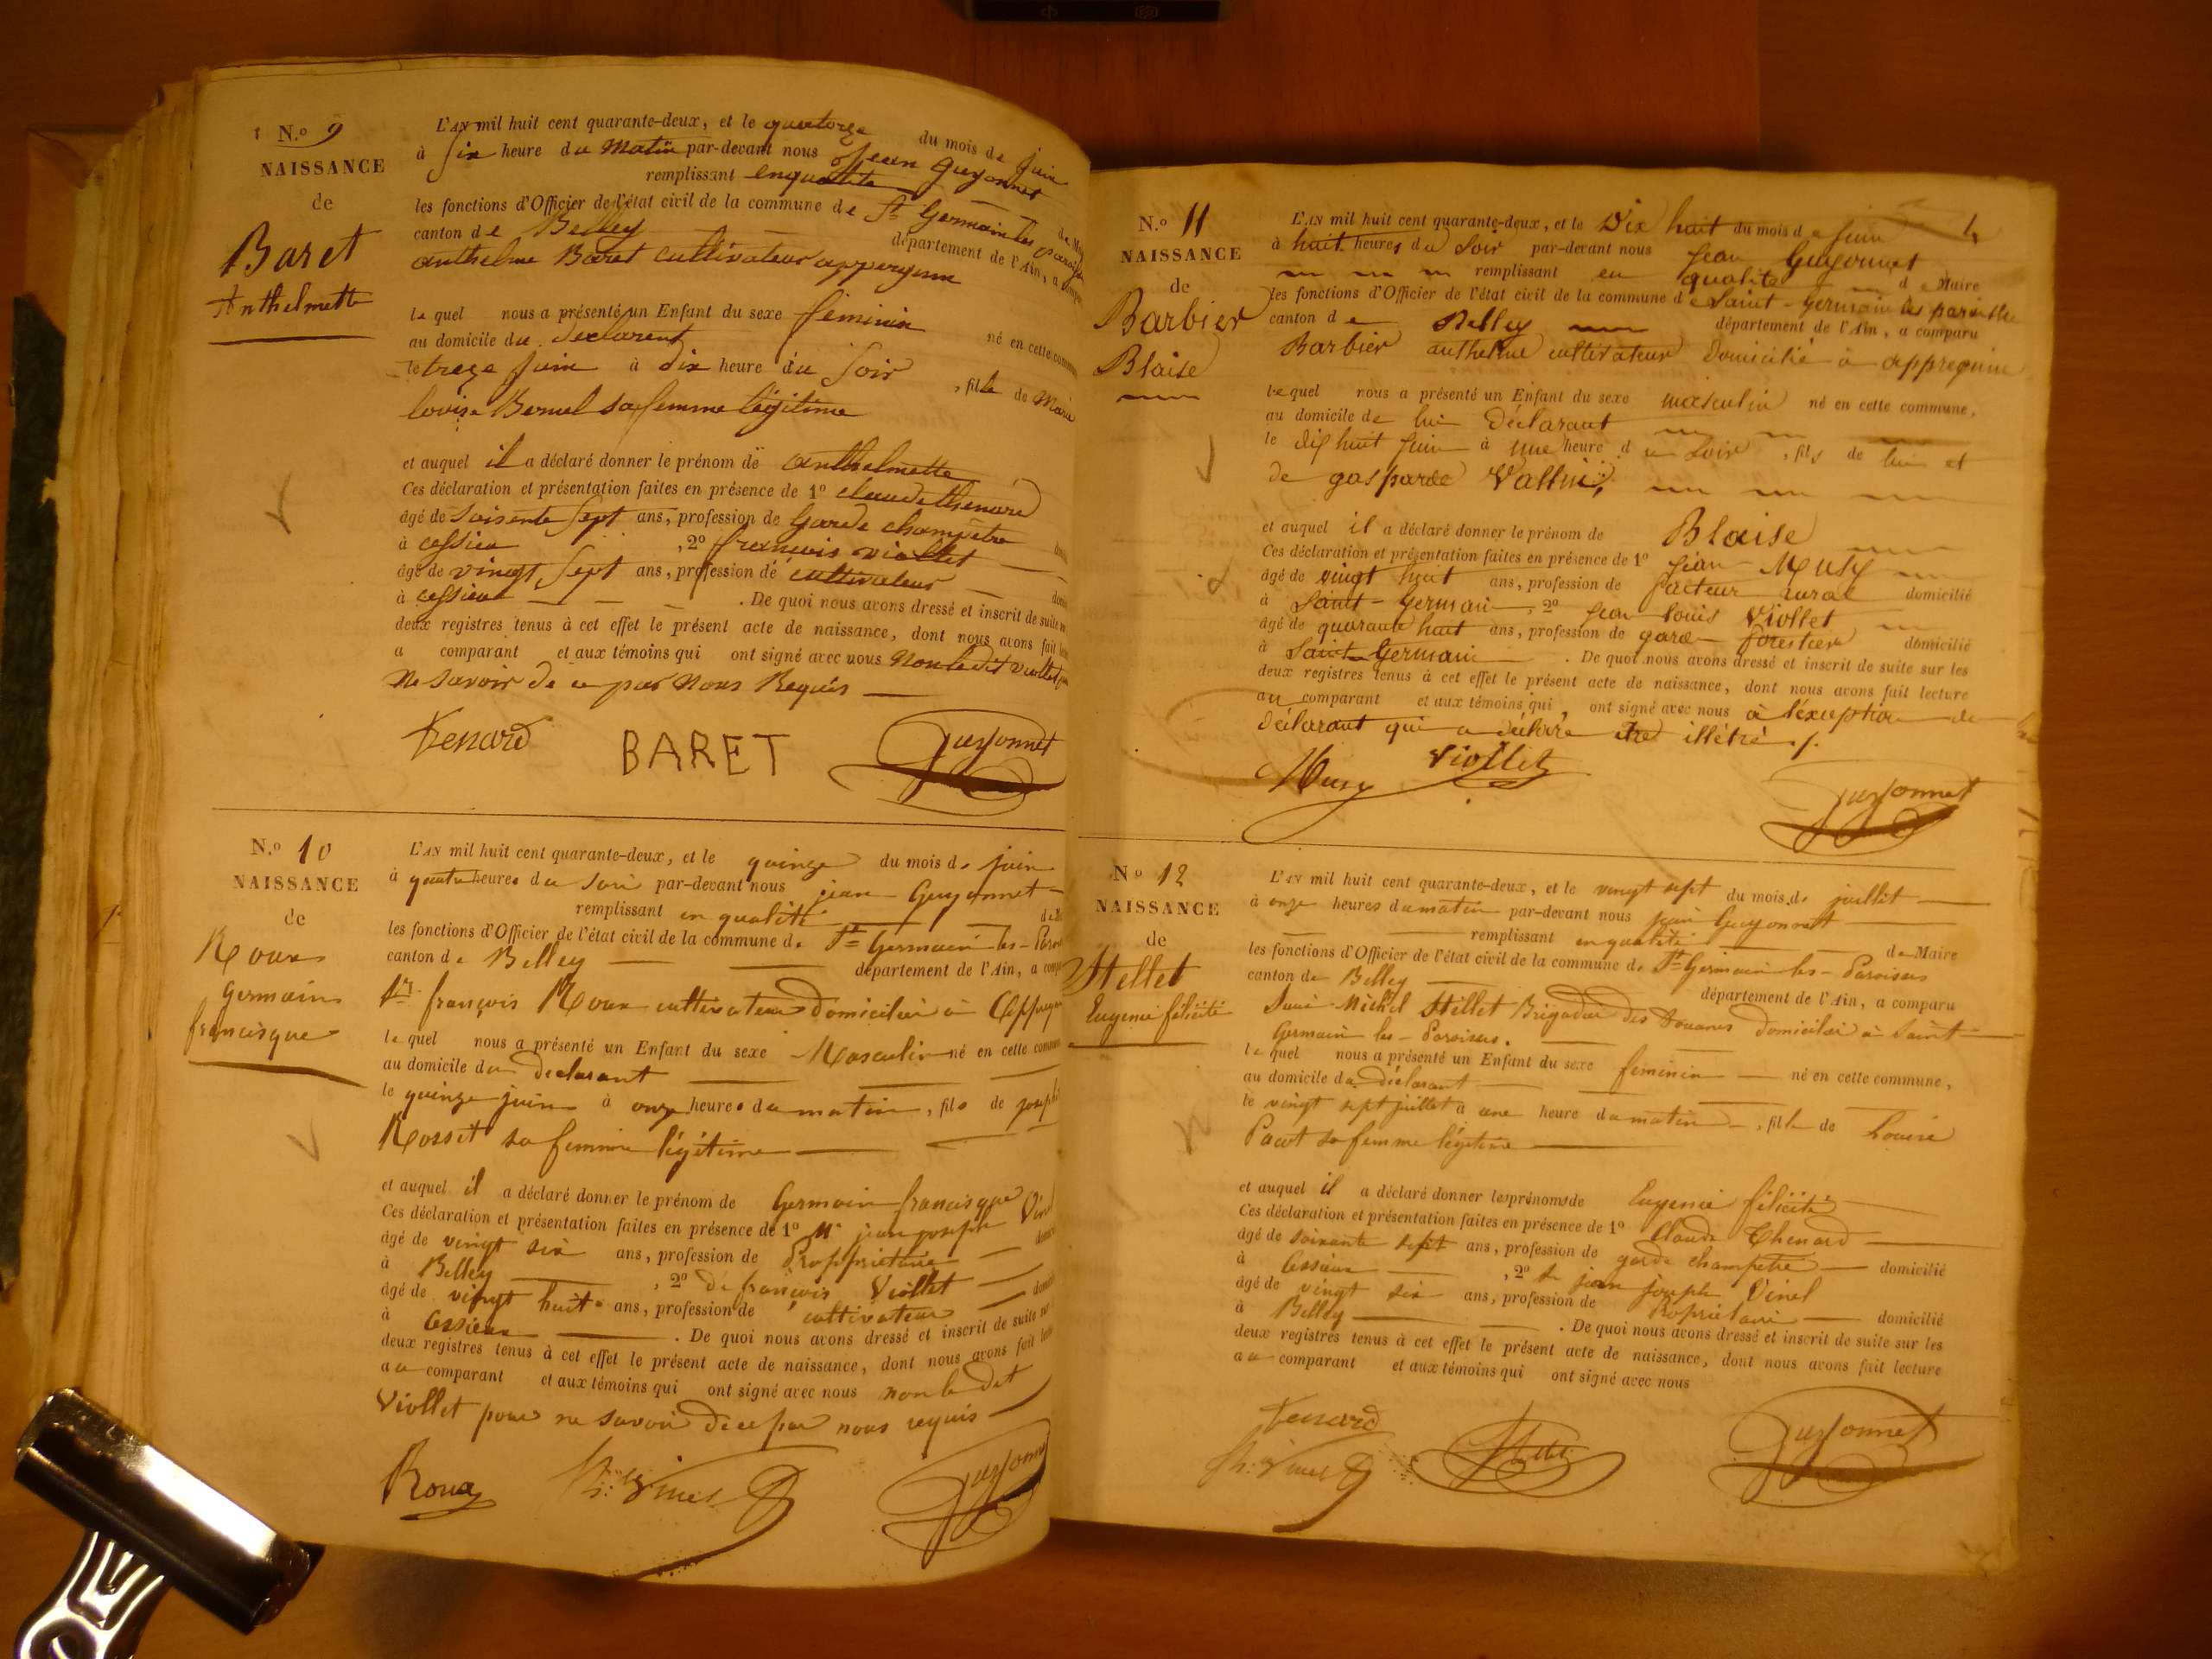 N.o 9
NAISSANCE
de
Baret
Anthelmette
L'AN mil huit cent quarante-deux, et le quatorze du mois de juin
à six heure du matin par-devant nous Jean Guyonnet
remplissant enqualité de Maire
les fonctions d'Officier de l'état civil de la commune de St Germain les paroisses
canton de Belley département de l'Ain, a comparu
anthelme Baret cultivateur appregnin
lequel nous a présenté un Enfant du sexe féminin né en cette commune
au domicile du declarent
le treze juin à dix heure du soir, fille de Marie
louise Bornel sa femme légitime
et auquel il a déclaré donner le prénom de anthelmette
Ces déclaration et présentation faites en présence de 1o claude thenard
âgé de soisente sept ans, profession de garde champetre
à cessieu, 2o françois viollet
âgé de vingt sept ans, profession de cultivateur
à cessieu. De quoi nous avons dressé et inscrit de suite
deux registres tenus à cet effet le présent acte de naissance, dont nous avons fait
a comparant et aux témoins qui ont signé avec nous non le dit viollet
ne savoir de ce par nous Requis
Tenard BARET Guyonnet
N.o 10
NAISSANCE
de
Roux
germain
francisque
L'AN mil huit cent quarante-deux, et le quinze du mois de juin
à quatre heures du soir par-devant nous jean Guyonnet
remplissant en qualité
les fonctions d'Officier de l'état civil de la commune de St Germain les-
canton de Belley département de l'Ain, a
Sr. françois Roux cultivateur domicilié à
lequel nous a présenté un Enfant du sexe Masculin né en cette commune
au domicile du declarant
le quinze juin à onze heures du matin, fils de
Rosset sa femme légitime
et auquel il a déclaré donner le prénom de Germain francisque
Ces déclaration et présentation faites en présence de 1o Mr jean joseph Vinel
âgé de vingt six ans, profession de Propriétaire
à Belley, 2o de françois Viollet
âgé de vingt huit ans, profession de cultivateur
à Cessieu. De quoi nous avons dressé et inscrit de suite
deux registres tenus à cet effet le présent acte de naissance, dont nous avons fait
au comparant et aux témoins qui ont signé avec nous non le dit
Viollet pour ne savoir de ce par nous requis
Roux Guyonnet
4
N.o 11
NAISSANCE
de
Barbier
Blaise
L'AN mil huit cent quarante-deux, et le Dix huit du mois de juin
à huit heures du soir par-devant nous Jean Guyonnet
remplissant en qualité de Maire
les fonctions d'Officier de l'état civil de la commune de Saint-Germain les paroisses
canton de Belley département de l'Ain, a comparu
Barbier anthelme cultivateur Domicilié à appregnin
lequel nous a présenté un Enfant du sexe masculin né en cette commune,
au domicile de lui Déclarant
le dix huit juin à une heure du soir, fils de lui et
de gasparde Vallin
et auquel il a déclaré donner le prénom de Blaise
Ces déclaration et présentation faites en présence de 1o Jean Musy
âgé de vingt huit ans, profession de facteur rural domicilié
à Saint-Germain, 2o Jean louis Viollet
âgé de quarante huit ans, profession de garde forestier domicilié
à Saint-Germain. De quoi nous avons dressé et inscrit de suite sur les
deux registres tenus à cet effet le présent acte de naissance, dont nous avons fait lecture
au comparant et aux témoins qui ont signé avec nous à l'exception du
Déclarant qui a déclaré être illétré
Musy Viollet Guyonnet
No 12
NAISSANCE
de
Stellet
Eugenie félicité
L'AN mil huit cent quarante-deux, et le vingt sept du mois de juillet
à onze heures du matin par-devant nous jean Guyonnet
remplissant en qualité de Maire
les fonctions d'Officier de l'état civil de la commune de St Germain les-Paroisses
canton de Belley département de l'Ain, a comparu
Michel Stellet Brigadier des Douanes domicilié à Saint
Germain les-Paroisses.
lequel nous a présenté un Enfant du sexe feminin né en cette commune,
au domicile du déclarant
le vingt sept juillet à une heure du matin, fille de Louise
Pacot sa femme légitime
et auquel il a déclaré donner les prénoms de Eugenie félicité
Ces déclaration et présentation faites en présence de 1o Claude Thenard
âgé de soixante sept ans, profession de garde champetre domicilié
à Cessieu, 2o Sr jean joseph Vinel
âgé de vingt six ans, profession de Propriétaire domicilié
à Belley. De quoi nous avons dressé et inscrit de suite sur les
deux registres tenus à cet effet le présent acte de naissance, dont nous avons fait lecture
au comparant et aux témoins qui ont signé avec nous
Tenard
Guyonnet